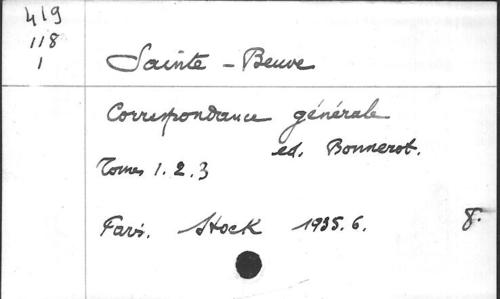 419
118
1
Sainte - Beuve
Correspondance générale
ed. Bonnerot.
Tomes 1. 2. 3
Paris. Stock 1935. 6. 8.